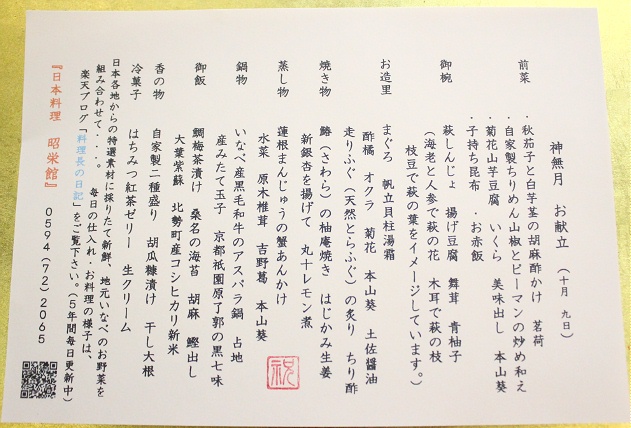 神無月 お献立 (十月 九日)
前菜 ・秋茄子と白芋茎の胡麻酢かけ 茗荷
・自家製ちりめん山椒とピーマンの炒め和え
・菊花山芋豆腐 いくら 美味出し 本山葵
・子持ち昆布 ・お赤飯
御椀 萩しんじょ 揚げ豆腐 舞茸 青柚子
(海老と人参で萩の花 木耳で萩の枝
枝豆で萩の葉をイメージしています。)
お造里 まぐろ 帆立貝柱湯霜
酢橘 オクラ 菊花 本山葵 土佐醤油
走りふぐ(天然とらふぐ)の炙り ちり酢
焼き物 鰆(さわら)の柚庵焼き はじかみ生姜
新銀杏を揚げて 丸十レモン煮
蒸し物 蓮根まんじゅうの蟹あんかけ
水菜 原木椎茸 吉野葛 本山葵
鍋物 いなべ産黒毛和牛のアスパラ鍋 占地
産みたて玉子 京都祇園原了郭の黒七味
御飯 鯛梅茶漬け 桑名の海苔 胡麻 鰹出し
大葉紫蘇 北勢町産コシヒカリ新米
香の物 自家製二種盛り 胡瓜糠漬け 干し大根
冷菓子 はちみつ紅茶ゼリー 生クリーム
日本各地からの特選素材に採りたて新鮮、地元いなべのお野菜を
組み合わせて・・・。 毎日の仕入れ・お料理の様子は、
楽天ブログ「料理長の日記」をご覧下さい。(5年間毎日更新中)
『日本料理 昭栄館』 0594(72)2065
祝